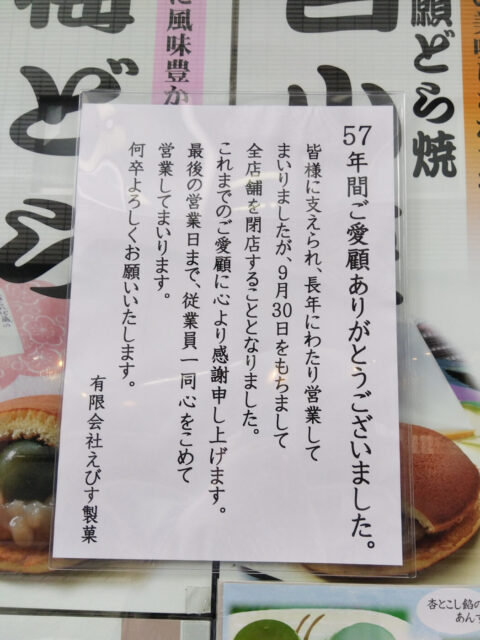 57年間ご愛顧ありがとうございました。
皆様に支えられ、長年にわたり営業して
まいりましたが、9月30日をもちまして
全店舗を閉店することとなりました。
これまでのご愛顧に心より感謝申し上げます。
最後の営業日まで、従業員一同心をこめて
営業してまいります。
何卒よろしくお願いいたします。
有限会社えびす製菓
願どら焼
に風味豊か
梅どら
杏とこし餡の
あんず